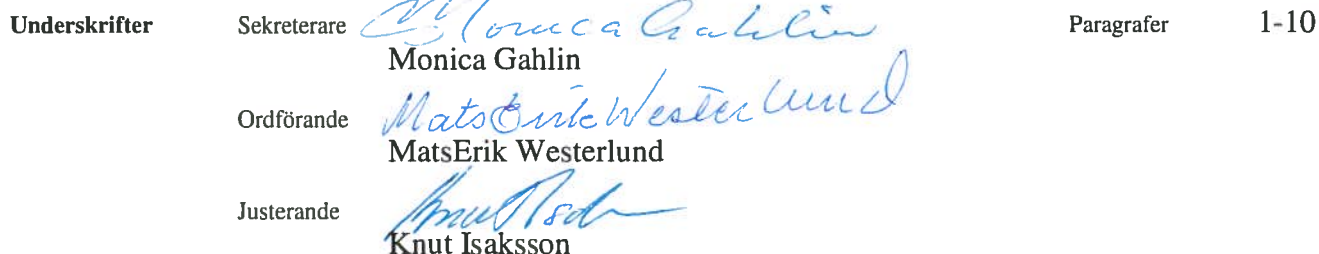 Underskrifter Sekreterare Monica Gahlin Paragrafer 1-10
Monica Gahlin
Ordförande MatsErik Westerlund
MatsErik Westerlund
Justerande Knut Isak
Knut Isaksson